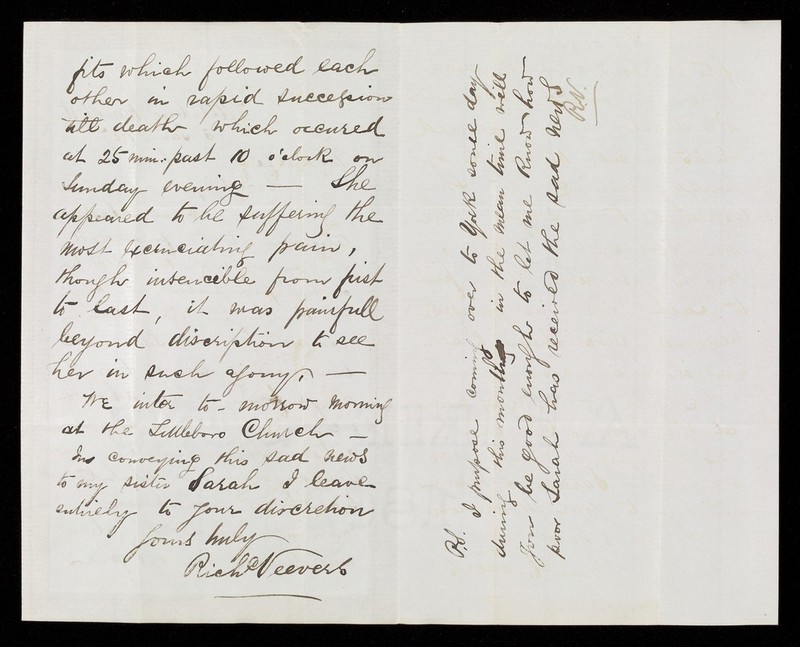 fits which followed each
other in rapid succession
till death which occured
at 25 min. past 10 o'clock on
Sunday evening — She
appeared to be suffering the
most excruciating pain,
though insencible from first
to last, it was painfull
beyond discription to see
her in such agony, —
We inter to-morrow morning
at the Littleboro Church —
In conveying this sad news
to my sister Sarah I leave
entirely to your discretion
Yours truly
Richd Veevers
P.S. I purpose coming over to York some day
during this month, in the mean time will
you be good enough to let me know how
poor Sarah has received the sad news
R.V.